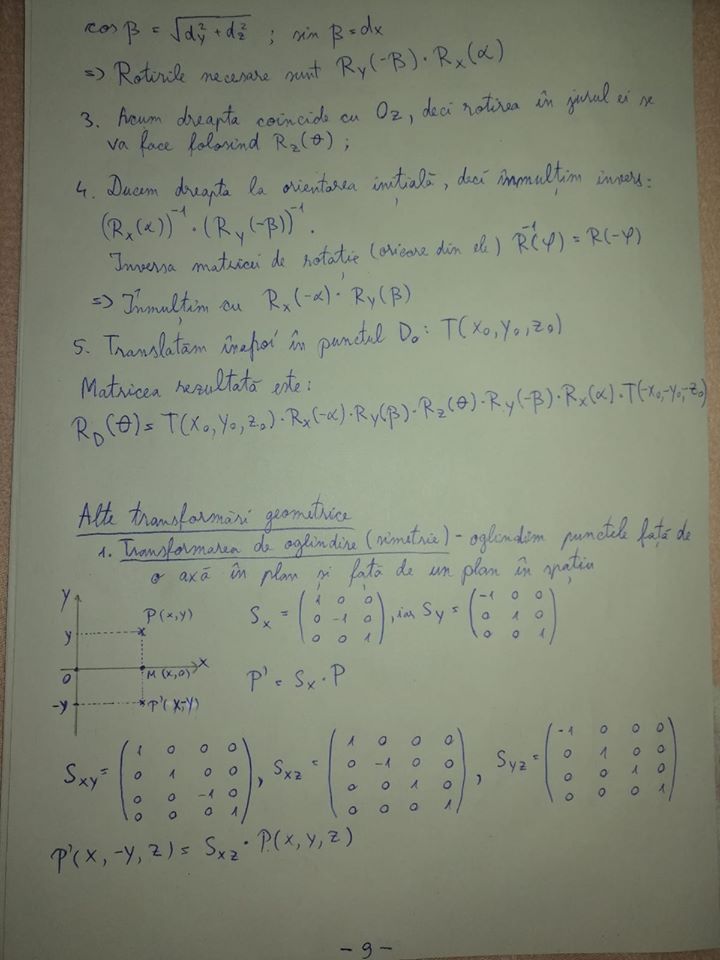 cos β = √(dy² + dz²) ; sin β = dx
=> Rotirile necesare sunt Ry(-β) · Rx(α)
3. Acum dreapta coincide cu Oz, deci rotirea în jurul ei se
va face folosind Rz(θ) ;
4. Ducem dreapta la orientarea inițială, deci înmulțim invers:
(Rx(α))⁻¹ · (Ry(-β))⁻¹.
Inversa matricei de rotație (oricare din ele) R⁻¹(φ) = R(-φ)
=> Înmulțim cu Rx(-α) · Ry(β)
5. Translatăm înapoi în punctul D₀: T(x₀, y₀, z₀)
Matricea rezultată este:
R_D(θ) = T(x₀, y₀, z₀) · Rx(-α) · Ry(β) · Rz(θ) · Ry(-β) · Rx(α) · T(-x₀, -y₀, -z₀)
Alte transformări geometrice
1. Transformarea de oglindire (simetrie) - oglindim punctele față de
o axă în plan și față de un plan în spațiu
y
P(x,y)
y
0
M(x,0)
x
-y
P'(x,-y)
Sx = (1 0 0
0 -1 0
0 0 1), iar Sy = (-1 0 0
0 1 0
0 0 1)
P' = Sx · P
Sxy = (1 0 0 0
0 1 0 0
0 0 -1 0
0 0 0 1), Sxz = (1 0 0 0
0 -1 0 0
0 0 1 0
0 0 0 1), Syz = (-1 0 0 0
0 1 0 0
0 0 1 0
0 0 0 1)
P'(x, -y, z) = Sxz · P(x, y, z)
- 9 -